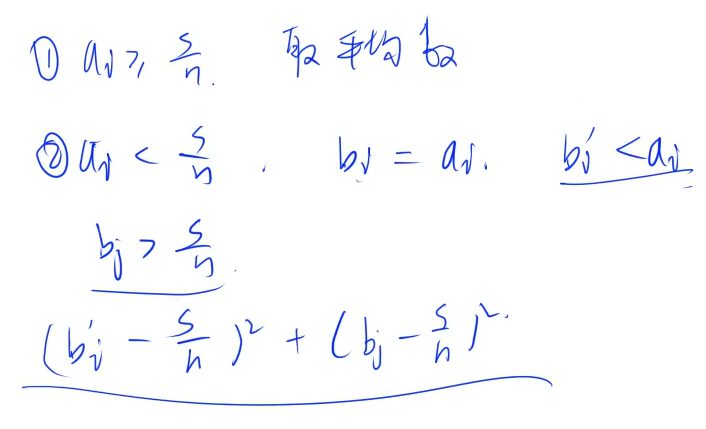 ① aᵢ ≥ s/n. 取平均数
② aᵢ < s/n. bᵢ = aᵢ. bᵢ' < aᵢ
bⱼ > s/n.
(bᵢ' - s/n)² + (bⱼ - s/n)².